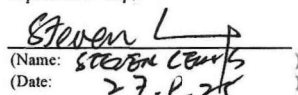 Steven L
(Name: STEVEN LEWIS )
(Date: 27.8.25 )